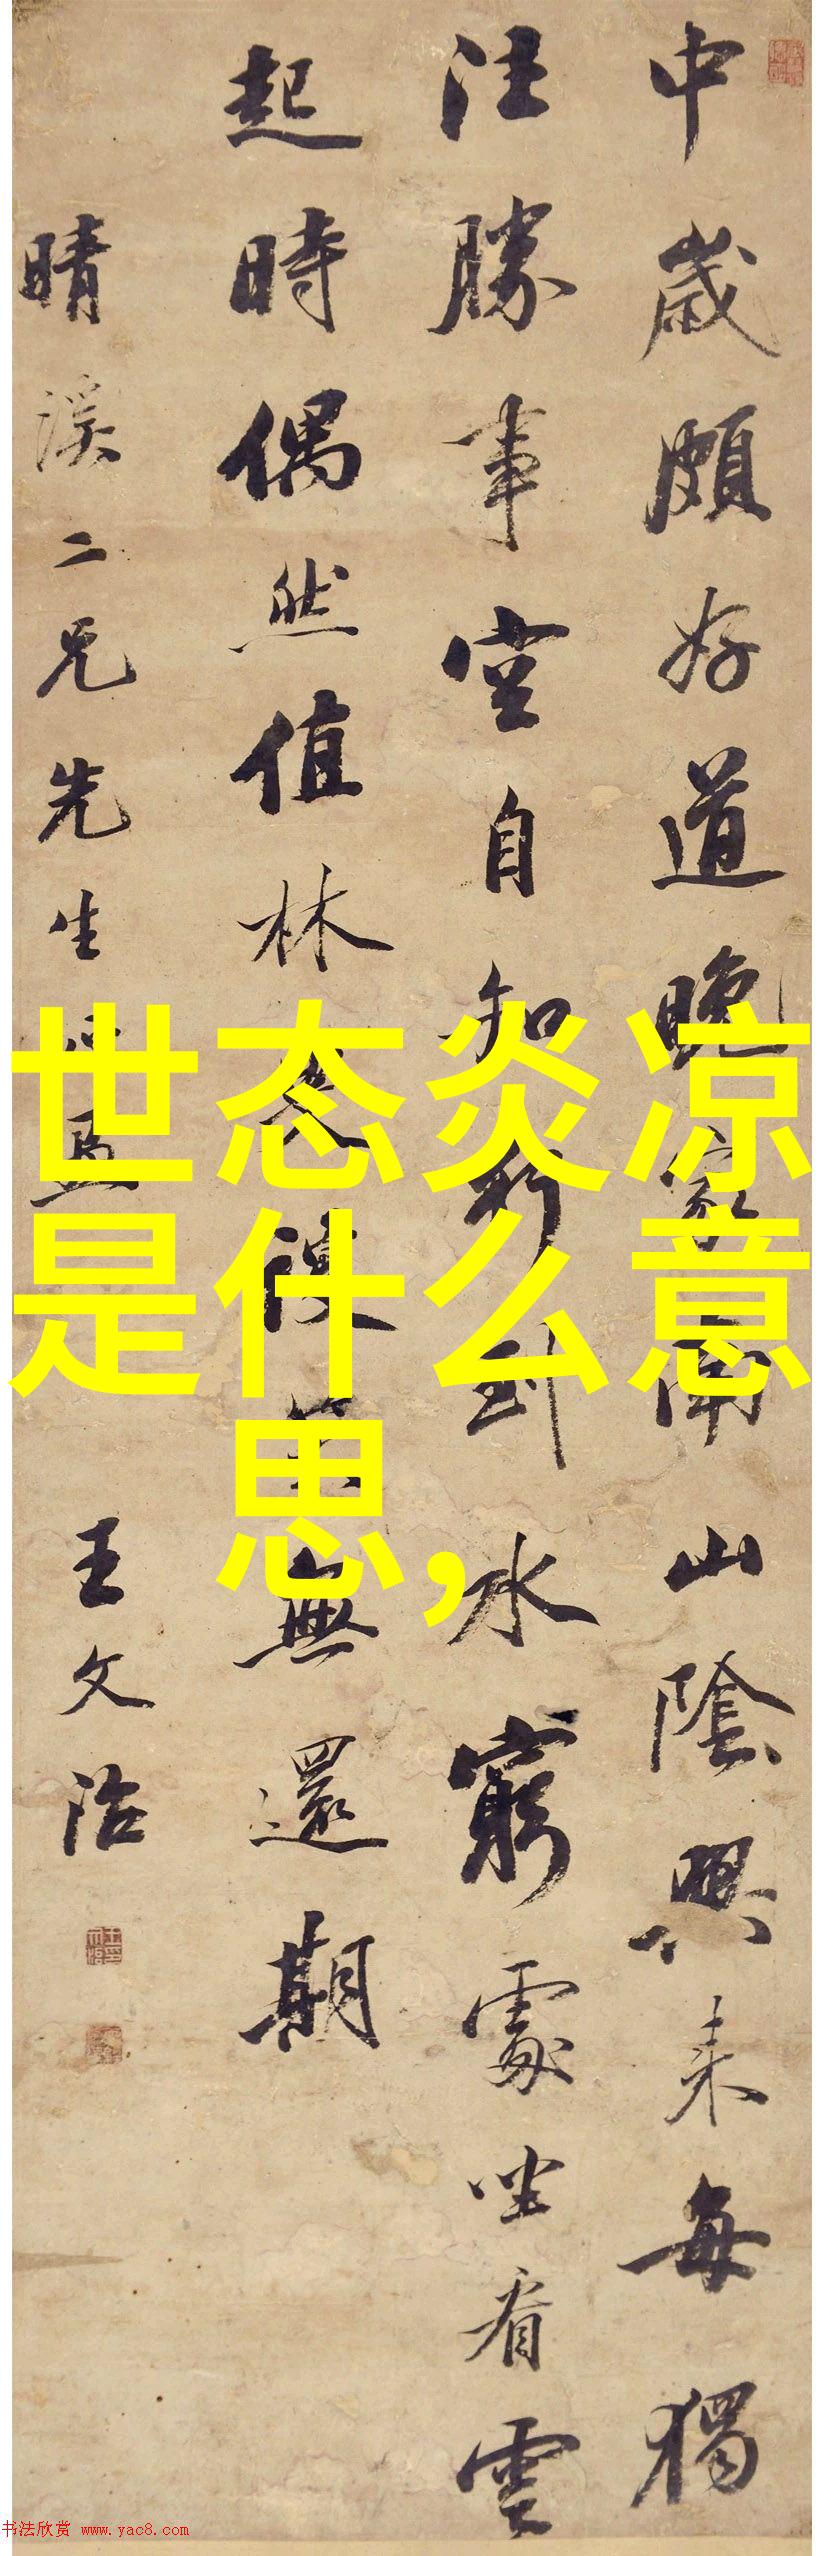 中歲頗好道晚家南山陲興來每獨
往勝事空自知行到水窮處坐看雲
起時偶然值林叟談笑無還期
晴溪二兄先生
王文治
世态炎凉
是什么意
思,
书法欣赏 www.yac8.com